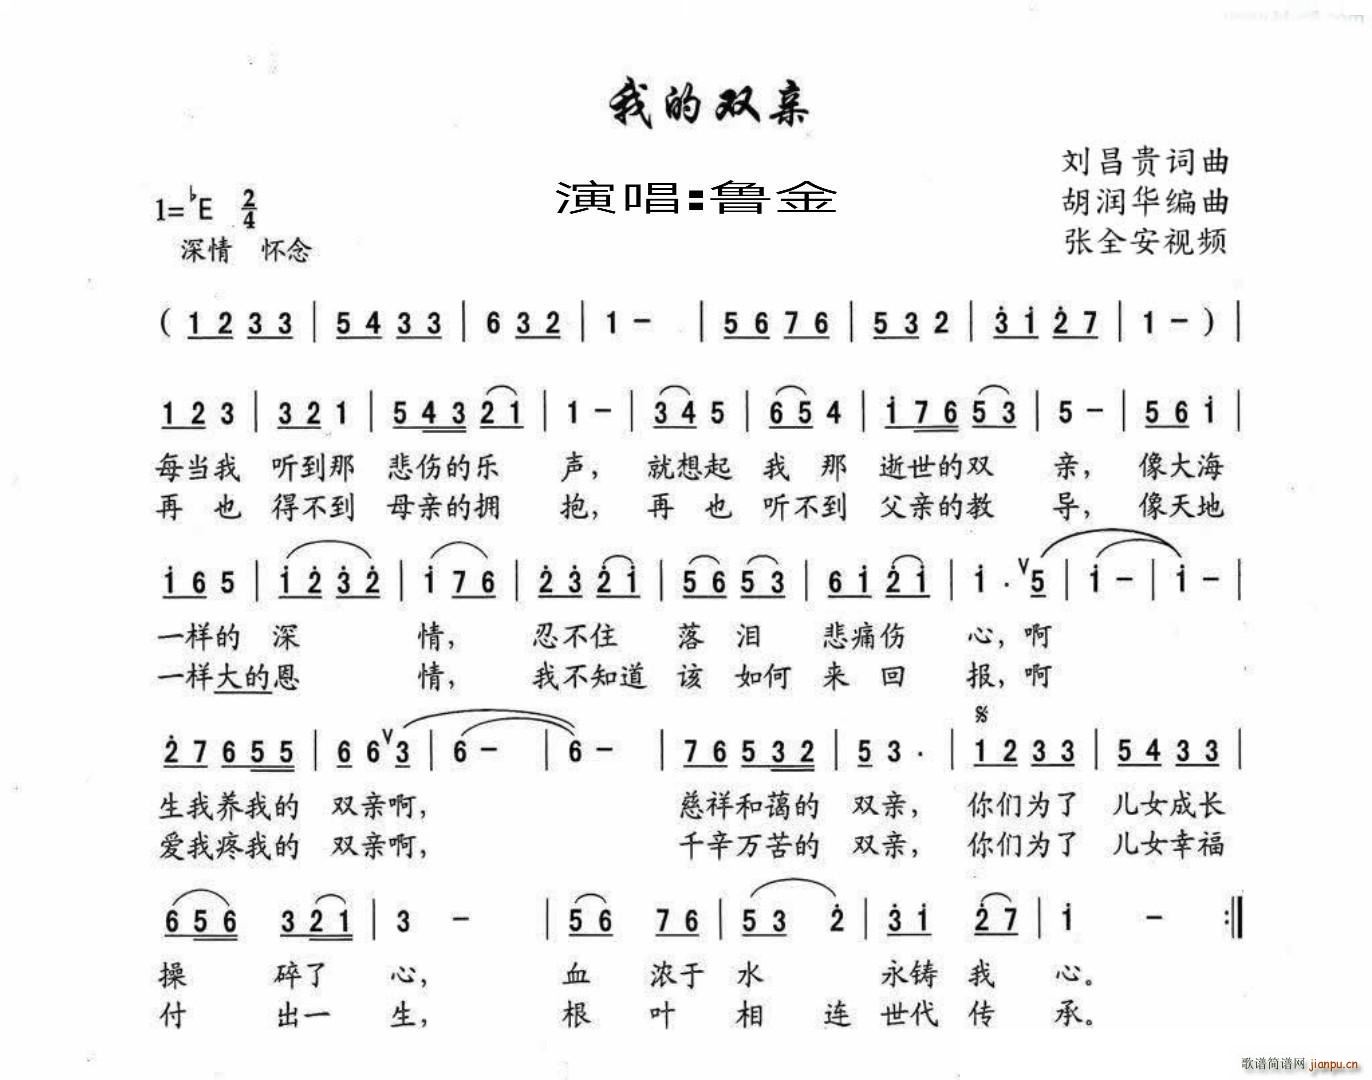 我的双亲
刘昌贵词曲
演唱:鲁金
胡润华编曲
1=♭E 2/4
张全安视频
深情 怀念
( 1 2 3 3 | 5 4 3 3 | 6 3 2 | 1 - | 5 6 7 6 | 5 3 2 | 3̇ 1̇ 2̇ 7 | 1 - ) |
1 2 3 | 3 2 1 | 5 4 3 2 1 | 1 - | 3 4 5 | 6 5 4 | 1̇ 7 6 5 3 | 5 - | 5 6 1̇ |
每当我 听到那 悲伤的乐 声, 就想起 我 那 逝世的双 亲, 像大海
再 也 得不到 母亲的拥 抱, 再 也 听不到 父亲的教 导, 像天地
1̇ 6 5 | 1̇ 2̇ 3̇ 2̇ | 1̇ 7 6 | 2̇ 3̇ 2̇ 1̇ | 5 6 5 3 | 6 1̇ 2̇ 1̇ | 1̇ . ∨ 5 | 1̇ - | 1̇ - |
一样的 深 情, 忍不住 落 泪 悲痛伤 心, 啊
一样大的恩 情, 我不知道 该 如何 来 回 报, 啊
𝄋
2̇ 7 6 5 5 | 6 6 ∨ 3 | 6 - | 6 - | 7 6 5 3 2 | 5 3 . | 1 2 3 3 | 5 4 3 3 |
生我养我的 双亲啊, 慈祥和蔼的 双亲, 你们为了 儿女成长
爱我疼我的 双亲啊, 千辛万苦的 双亲, 你们为了 儿女幸福
6 5 6 3 2 1 | 3 - | 5 6 7 6 | 5 3 2̇ | 3̇ 1̇ 2̇ 7 | 1̇ - :‖
操 碎了 心, 血 浓于 水 永铸 我 心。
付 出一 生, 根 叶 相 连 世代 传 承。
歌谱简谱网 jianpu.cn